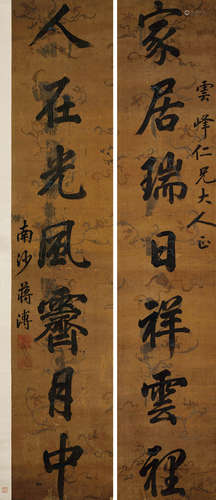 家居瑞日祥雲裡
雲峰仁兄大人正
人在光風霽月中
南沙蔣溥